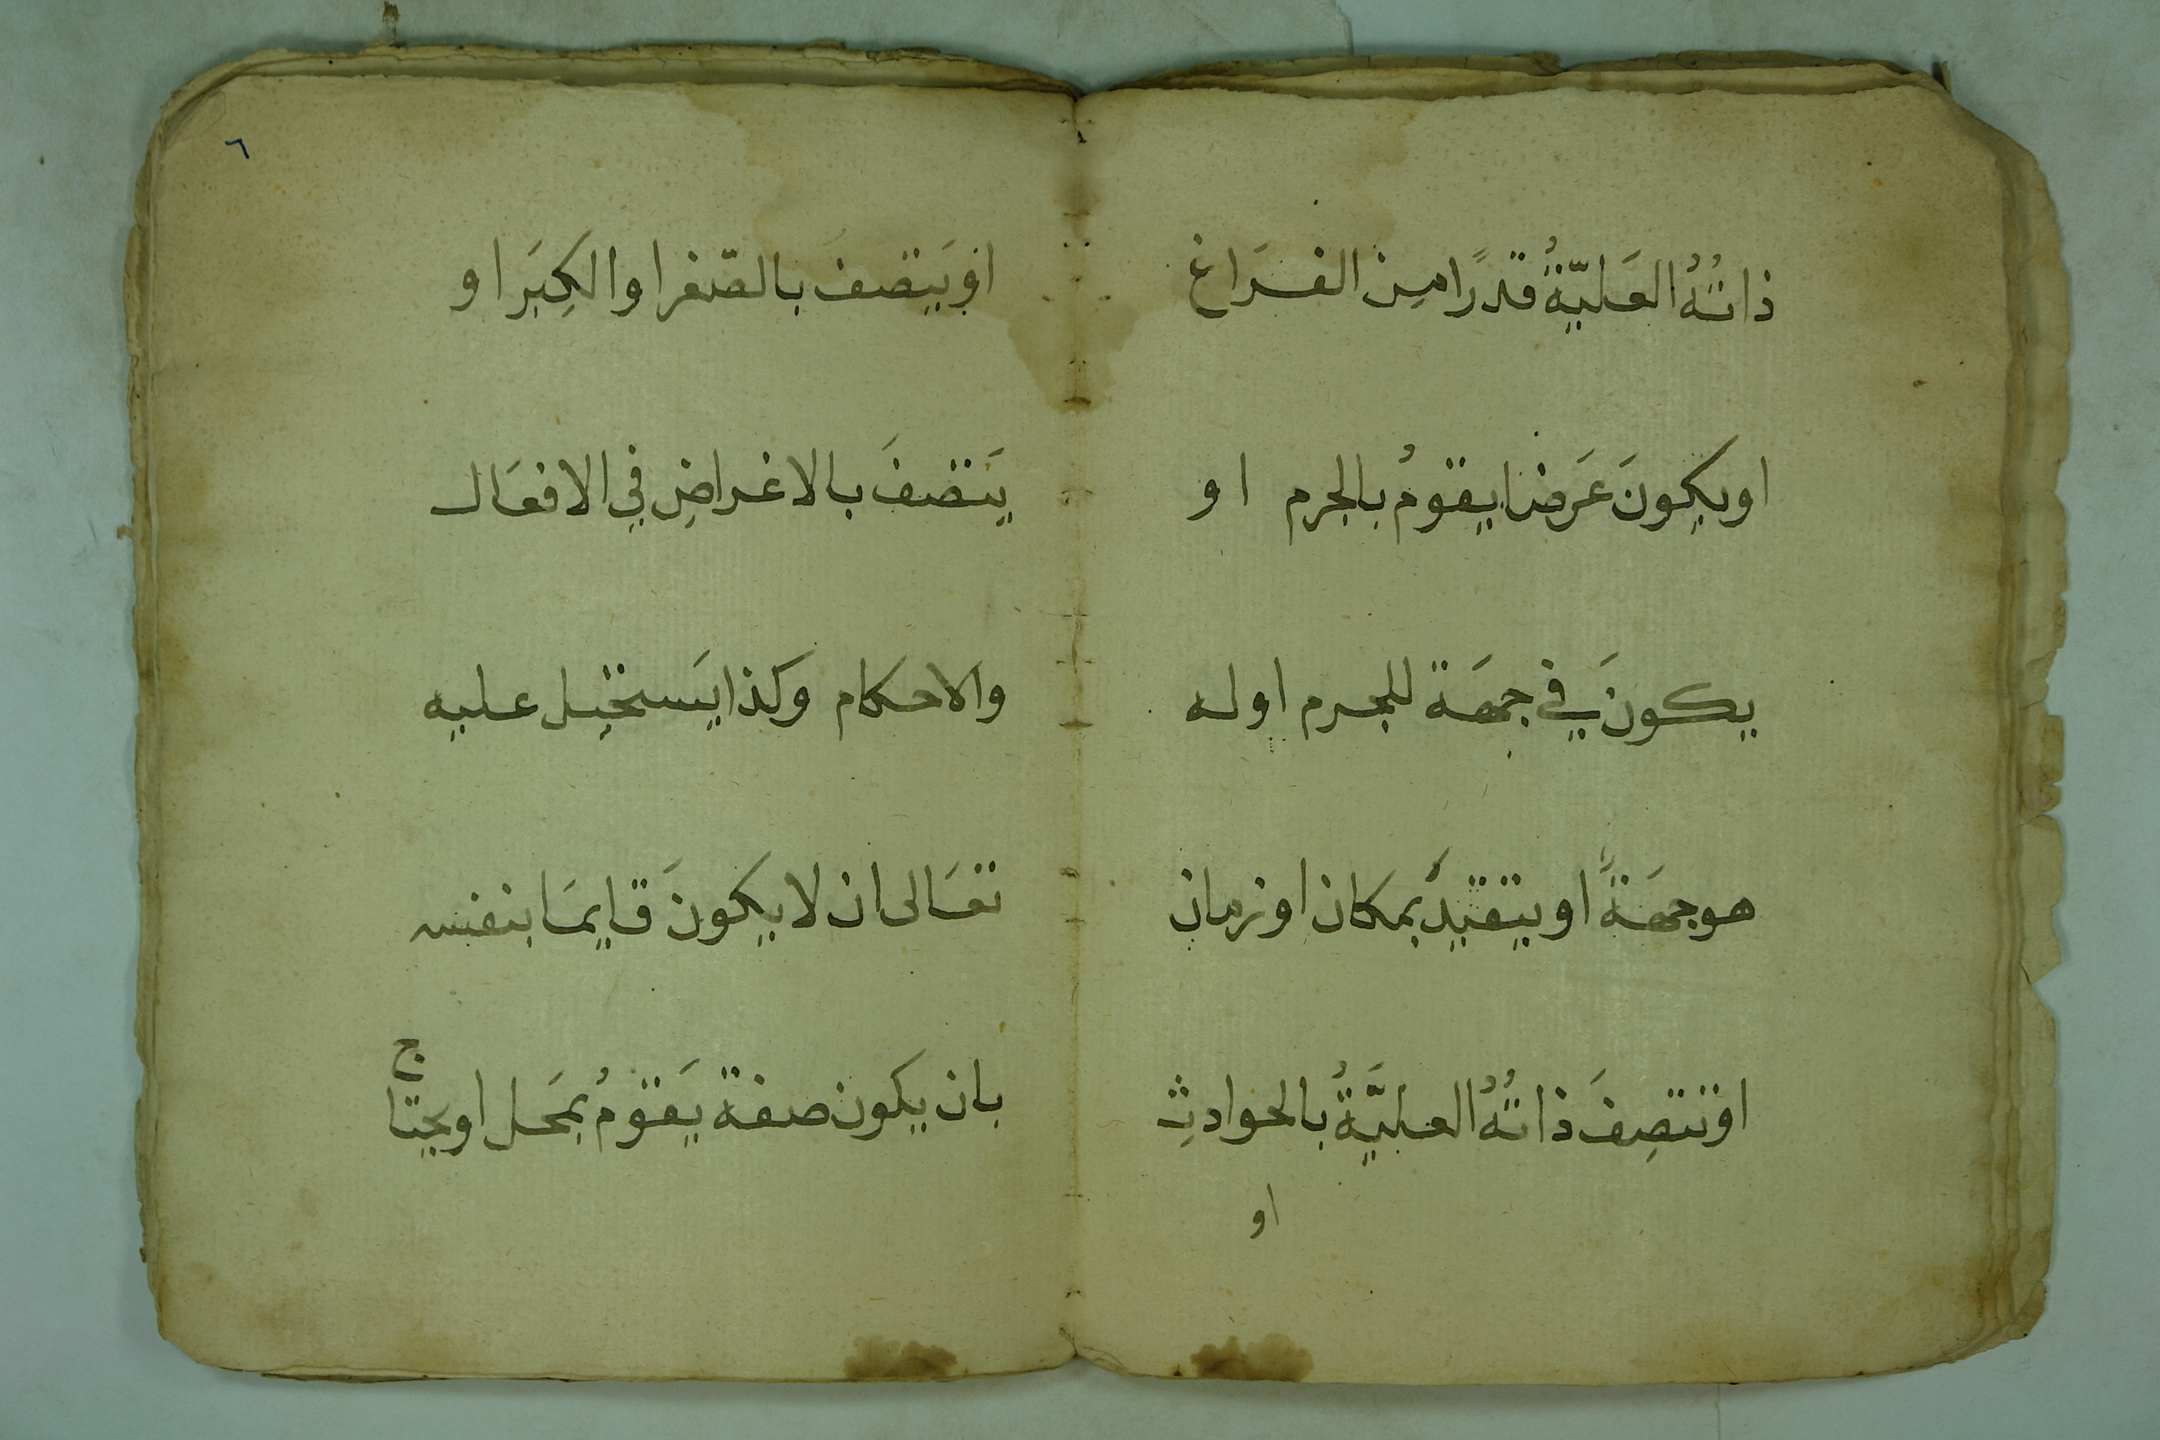 ذاتُهُ العَليّةُ قدرًا من الفَراغ
او يكونَ عَرضا يقومُ بالجرم او
يكونَ في جهَة للجرم اوله
هو جهَةً او يتقيدَ بمكان او زمان
او تتصِفَ ذاتُهُ العليَّةُ بالحوادثِ
او
٦
او يَتصفَ بالصّغر او الكِبَر او
يَتصفَ بالاغراضِ في الافعَال
والاحكام وكذا يَستحيل عليه
تعَالى ان لا يكونَ قايمَا بنفسه
بان يكون صفة يَقومُ بمَحل او يحتاج